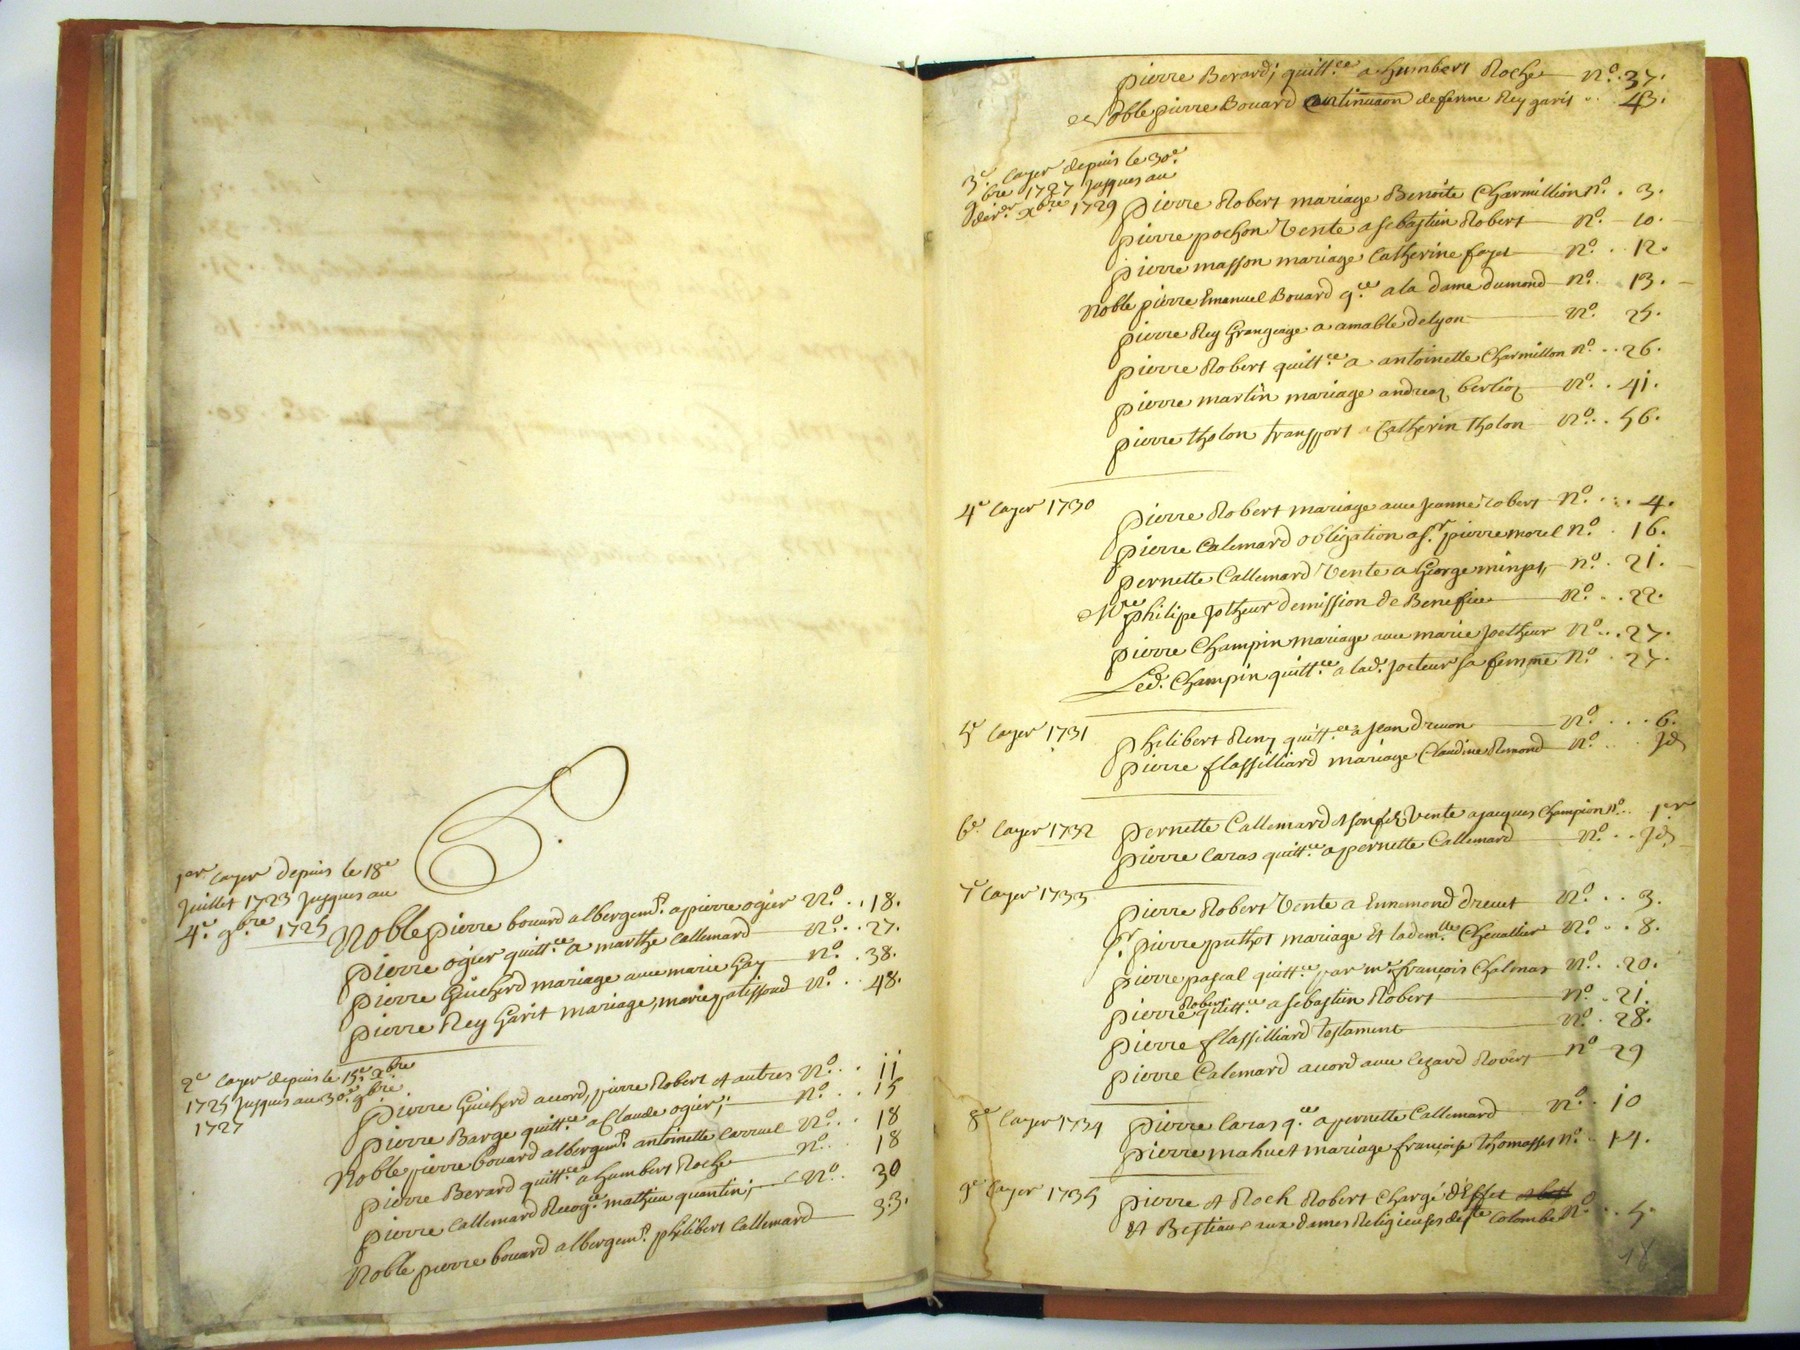 P.
1er Cayer depuis le 18e
Juillet 1723 Jusques au
4e 9bre 1725
Noble pierre bouard albergemt. a pierre ogier No. . 18.
Pierre ogier quittce a marthe Callemard No. . 27.
Pierre Guicherd mariage avec marie Gay No. . 38.
Pierre Rey Garit mariage, marie patissoud No. . 48.
2e Cayer depuis le 15e xbre
1725 Jusques au 30e 9bre
1727
Pierre Guicherd accord, pierre Robert et autres No. . 11
Pierre Barge quittce a Claude ogier; No. . 15
Noble pierre bouard albergemt. antoinette Carruel No. . 18
Pierre Berard quittce a humbert Roche No. . 18
Pierre Callemard Recogce. mathieu quantin; No. . 30
Noble pierre bouard albergemt. philibert Callemard 33.
Pierre Berard; quittce a humbert Roche No. . 37.
Noble pierre Bouard continuaon de ferme Rey garit . . 43.
3e. Cayer depuis le 30e.
9bre 1727 Jusques au
der. xbre 1729
Pierre Robert mariage Benoite Charmillion No. . 3.
Pierre pochon Vente a sebastien Robert No. 10.
Pierre masson mariage Catherine fayet No. . . 12.
Noble pierre Emanuel Bouard qce a la dame dumond No. . 13.
Pierre Rey Grangeage a amable delyon No. 25.
Pierre Robert quittce a antoinette Charmillon No. . . 26.
Pierre martin mariage andreaz berlioz No. . 41.
Pierre tholon transport a Catherin tholon No. . . 56.
4e Cayer 1730
Pierre Robert mariage avec Jeanne robert No. . . . 4.
Pierre Calemard obligation a sr. pierre morel No. . 16.
Pernette Callemard Vente a George No. . 21.
Mre philipe Jotheur demission de Benefice No. . . 22.
Pierre Champin mariage avec marie Joetheur No. . . 27.
Led. Champin quittce a lad. Jocteur sa femme No. . 27.
5e Cayer 1731
Philibert Remy quittce a Jean drevon No. . . . 6.
Pierre flassilliard mariage Claudine Rumond No. . . Id
6e. Cayer 1732
Pernette Callemard et son fils Vente a jacques Champion No. . . 1er
Pierre Caras quittce a pernette Callemard No. . . Id
7e Cayer 1733
Pierre Robert Vente a Ennemond drevet No. . . 3.
Sr. pierre puthot mariage Et lademlle Chevallier No. . . 8.
Pierre pascal quittce par mr françois Chalmas No. . 20.
Pierre Robert quittce a sebastien Robert No. . 21.
Pierre flassilliard testament No. . 28.
Pierre Calemard accord avec Cezard Robert No 29
8e Cayer 1734
Pierre Caras qce a pernette Callemard No. . 10
Pierre mahuet mariage françoise thomasset No. . 14.
9e Cayer 1735
Pierre et Roch Robert Chargé d'Effet
et Bestiaux aux dames Religieuses de ste Colombe No. . . 5.
18